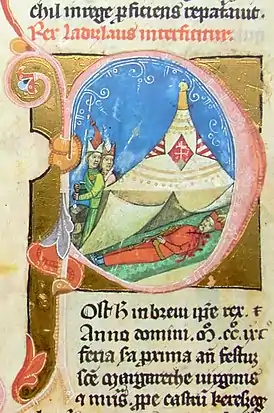 chil in rege proficiens reparavit.
Rex Ladislaus interficitur.
Post h in brevi ipse rex. t
Anno domini. M. cc. lxx
feria sa prima an festum
sce margarethe virginis
t mris prope castrum kerezeg